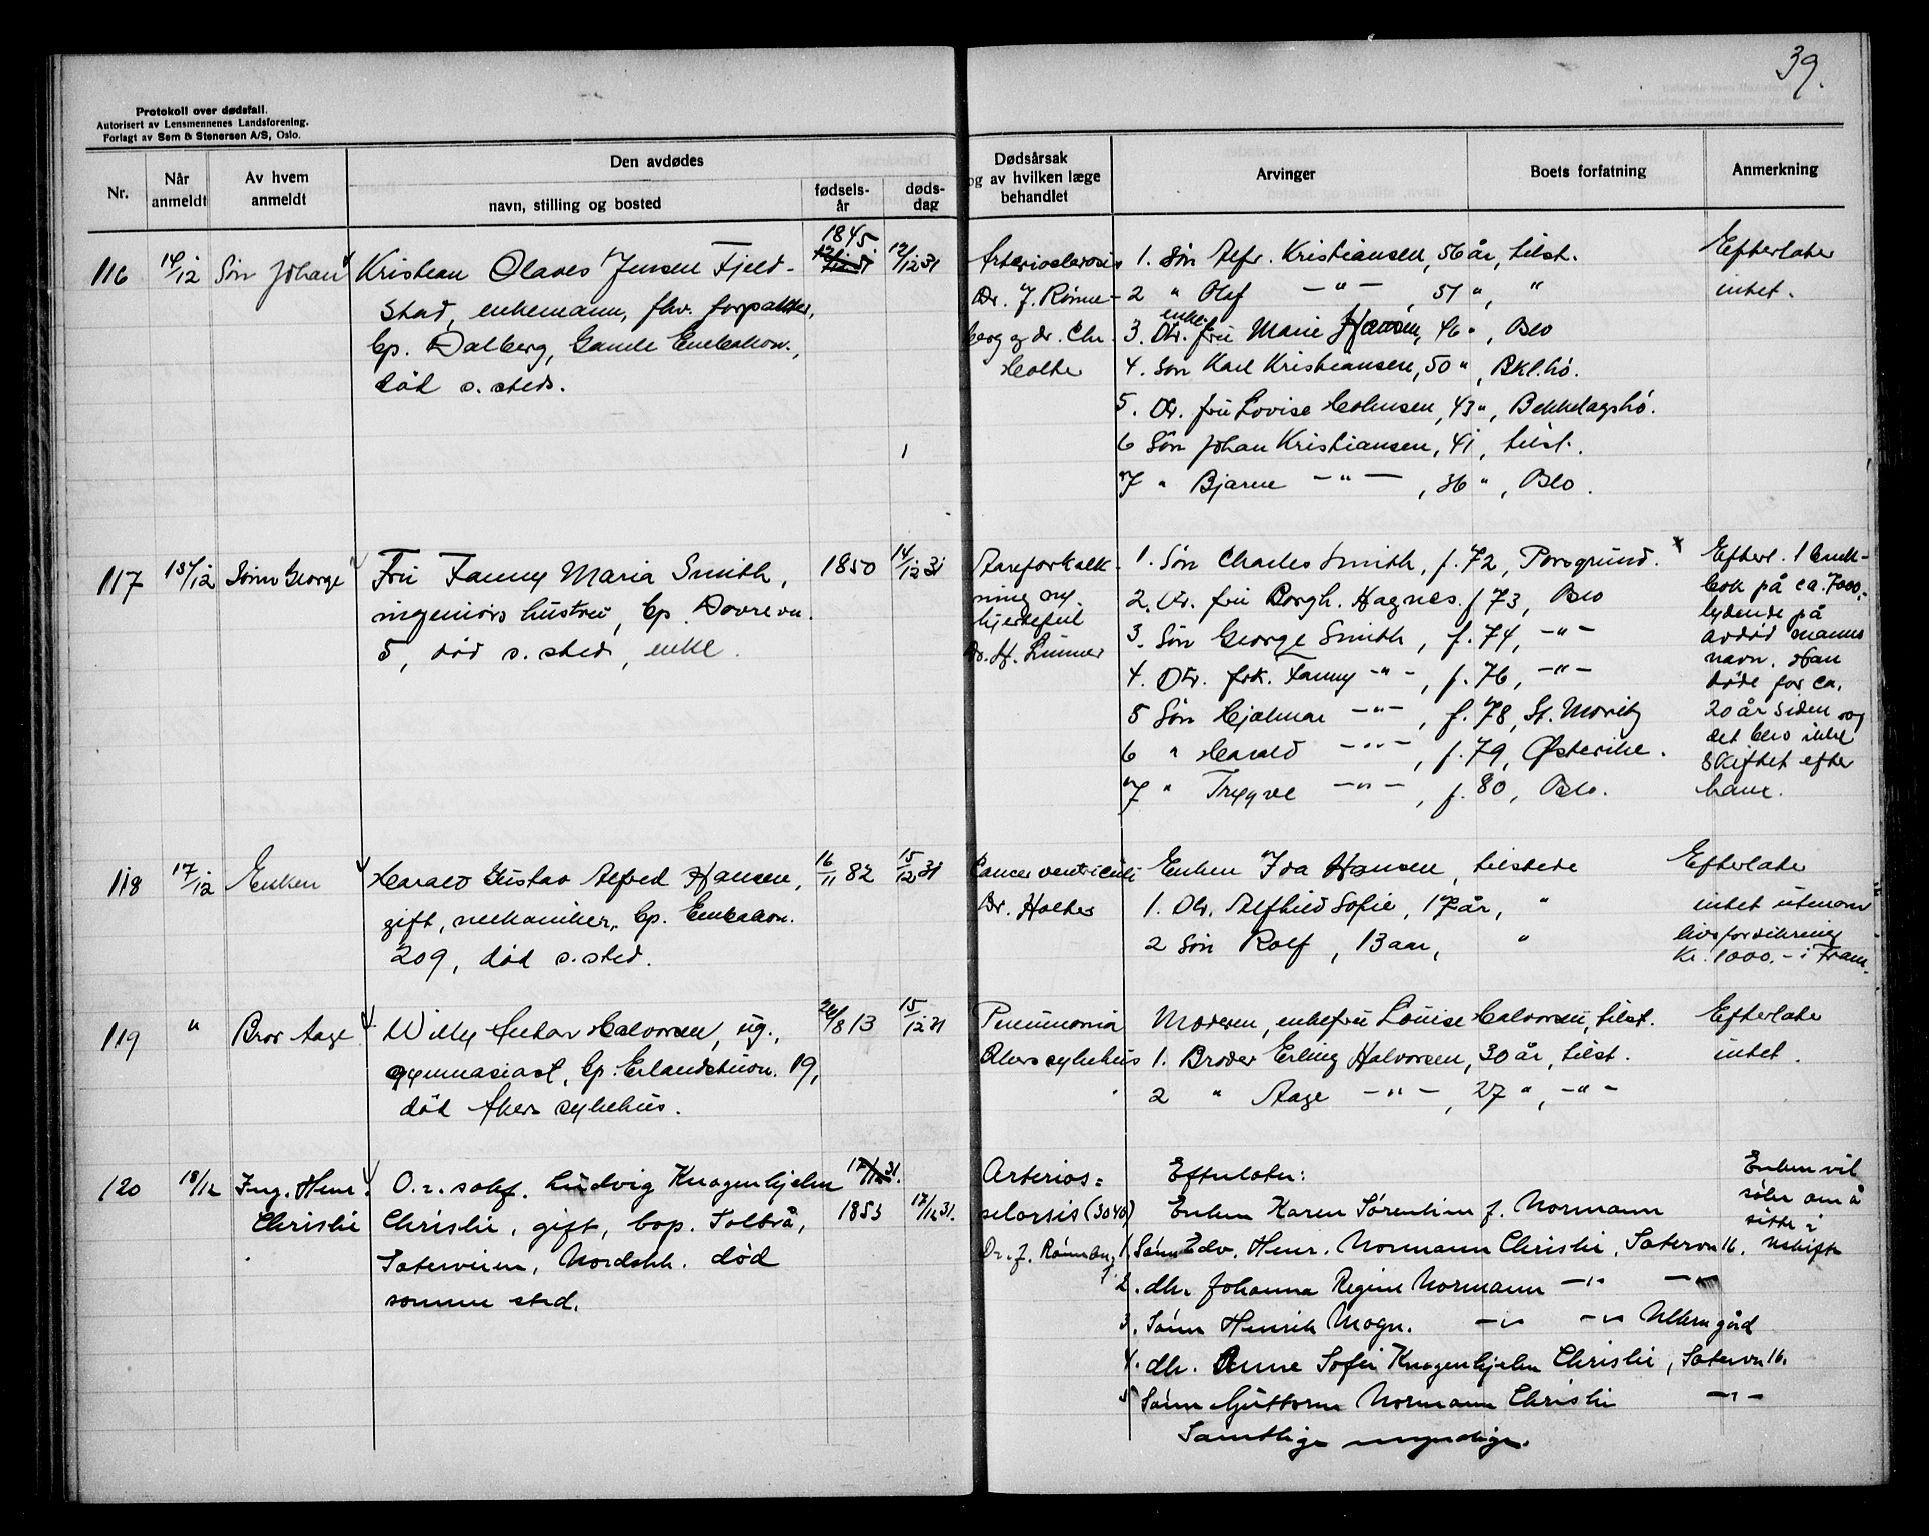 39.
Protokoll over dødsfall.
Autorisert av Lensmennenes Landsforening.
Forlagt av Sem & Stenersen A/S, Oslo.
Nr. Når anmeldt Av hvem anmeldt Den avdødes navn, stilling og bosted fødsels-år døds-dag Dødsårsak og av hvilken læge behandlet Arvinger Boets forfatning Anmerkning
116 14/12 Søn Johan Kristian Olaves Jensen Fjeld- 1845 12/12 31
stad, enkemann, fhv. forpakter,
bp. Dalberg, Gamle
død s. sted.
Dr. J. Rønne-
berg og dr. Chr.
Holte
1. Søn Alfr. Kristiansen, 56 år, tilst.
2 " Olaf — " — , 51 ", "
3. Dtr. enke fru Marie Hansen, 46 ", Oslo
4. Søn Karl Kristiansen, 50 ", Bkl.hø.
5. Dtr. fru Lovise Holmsen, 43 ", Bekkelagshø.
6 Søn Johan Kristiansen, 41, tilst.
7 " Bjarne — " — , 36 ", Oslo.
Efterlater
intet.
117 15/12 Sønn George Fru Fanny Maria Smith, 1850 14/12 31
ingeniørs hustru, bp. Dovrevn.
5, død s. sted, enke.
Aareforkalk-
ning og
hjertefeil
1. Søn Charles Smith, f. 72, Porsgrund.
2. Dtr. fru Borgh. Hagnes. f 73, Oslo
3. Søn George Smith, f. 74, — " —
4. Dtr. frk. Fanny — " — , f. 76, — " —
5 Søn Hjalmar — " — , f. 78, St. Moritz
6 " Harald — " — , f. 79, Østerike.
7 " Trygve — " — , f. 80, Oslo.
x Efterl. 1 bank-
bok på ca. 7000,-
lydende på
avdød manns
navn. Han
døde for ca.
20 år siden og
det blev ikke
skiftet efter
ham.
118 17/12 Enken Harald Gustav Alfred Hansen, 16/11 82 15/12 31
gift, mekaniker, bp.
209, død s. sted.
Cancer ventriculi
Dr. Holtes
Enken Ida Hansen, tilstede
1. Dtr. Alfhild Sofie, 17 år, "
2 Søn Rolf, 13 aar, "
Efterlater
intet utenom
livsforsikring
Kr. 1000.- i Fram.
119 " Bror Aage Willy Anton Halvorsen, ug., 26/8 13 15/12 31
gymnasiast, bp. Erlandstuvn. 19,
død Aker sykehus.
Pneumonia
Akers sykehus
Moderen, enkefru Louise Halvorsen, tilst.
1. Broder Erling Halvorsen, 30 år, tilst.
2 " Aage — " — , 27 ", — " —
Efterlater
intet.
120 18/12 Ing. Henr. Christie O.r. sakf. Ludvig Knagenhjelm 17/12 31.
Christie, gift, bop. Solbrå, 1853 17/12 31.
Sæterveien, Nordstr. død
samme sted.
Arterios=
sclorsis (3040)
Efterlater:
Enken Karen Sørenhim f. Normann
1. Sønn Edv. Henr. Normann Christie, Sætervn 16.
2. dtr. Johanna Regine Normann — " — — " —
3. Sønn Henrik Mogn. — " — — " — Ullern gård
4. dtr. Anne Sofie Knagenhjelm Christie, Sætervn 16.
5 Sønn Guttorm Normann Christie — " —
Samtlige myndige.
Enken vil
søke om å
sitte i
uskifte